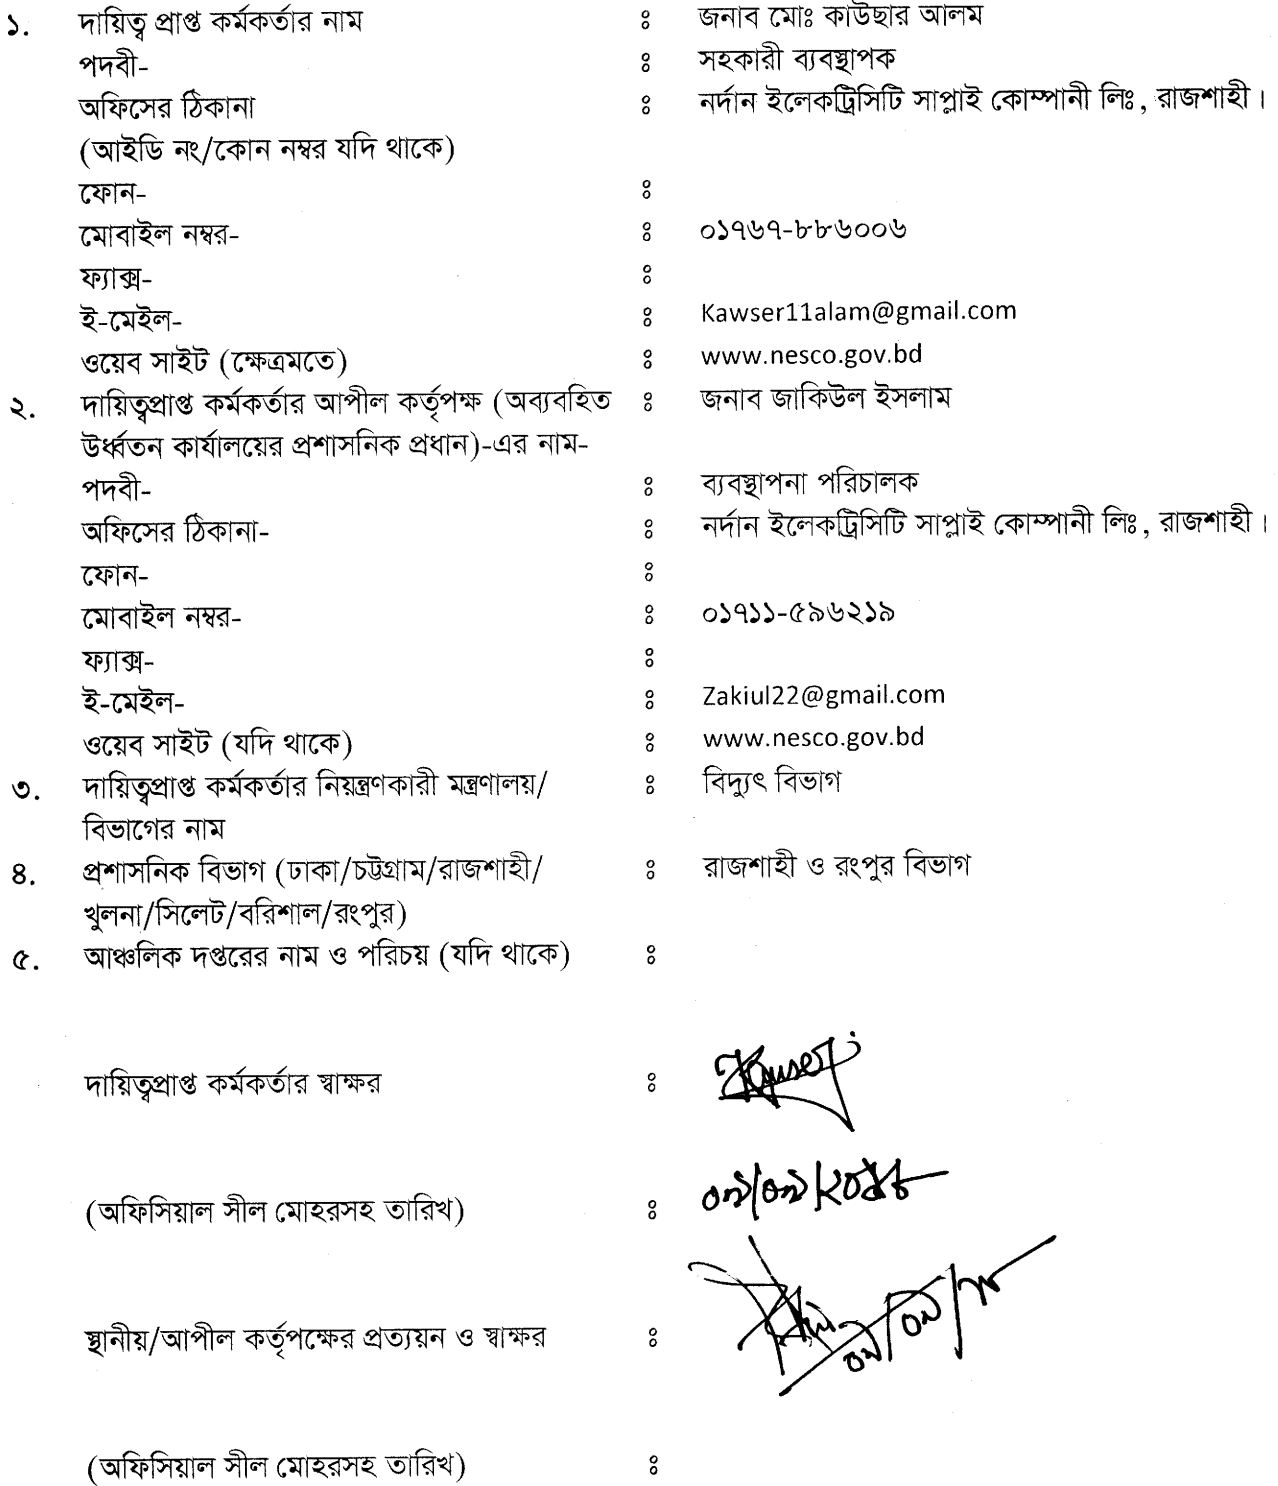 ১. দায়িত্ব প্রাপ্ত কর্মকর্তার নাম ঃ জনাব মোঃ কাউছার আলম
পদবী- ঃ সহকারী ব্যবস্থাপক
অফিসের ঠিকানা ঃ নর্দান ইলেকট্রিসিটি সাপ্লাই কোম্পানী লিঃ, রাজশাহী।
(আইডি নং/কোন নম্বর যদি থাকে)
ফোন- ঃ
মোবাইল নম্বর- ঃ ০১৭৬৭-৮৮৬০০৬
ফ্যাক্স- ঃ
ই-মেইল- ঃ Kawser11alam@gmail.com
ওয়েব সাইট (ক্ষেত্রমতে) ঃ www.nesco.gov.bd
২. দায়িত্বপ্রাপ্ত কর্মকর্তার আপীল কর্তৃপক্ষ (অব্যবহিত ঃ জনাব জাকিউল ইসলাম
উর্ধ্বতন কার্যালয়ের প্রশাসনিক প্রধান)-এর নাম-
পদবী- ঃ ব্যবস্থাপনা পরিচালক
অফিসের ঠিকানা- ঃ নর্দান ইলেকট্রিসিটি সাপ্লাই কোম্পানী লিঃ, রাজশাহী।
ফোন- ঃ
মোবাইল নম্বর- ঃ ০১৭১১-৫৯৬২১৯
ফ্যাক্স- ঃ
ই-মেইল- ঃ Zakiul22@gmail.com
ওয়েব সাইট (যদি থাকে) ঃ www.nesco.gov.bd
৩. দায়িত্বপ্রাপ্ত কর্মকর্তার নিয়ন্ত্রণকারী মন্ত্রণালয়/ ঃ বিদ্যুৎ বিভাগ
বিভাগের নাম
৪. প্রশাসনিক বিভাগ (ঢাকা/চট্টগ্রাম/রাজশাহী/ ঃ রাজশাহী ও রংপুর বিভাগ
খুলনা/সিলেট/বরিশাল/রংপুর)
৫. আঞ্চলিক দপ্তরের নাম ও পরিচয় (যদি থাকে) ঃ
দায়িত্বপ্রাপ্ত কর্মকর্তার স্বাক্ষর ঃ
(অফিসিয়াল সীল মোহরসহ তারিখ) ঃ
স্থানীয়/আপীল কর্তৃপক্ষের প্রত্যয়ন ও স্বাক্ষর ঃ ০৯/০৯/১৮
(অফিসিয়াল সীল মোহরসহ তারিখ) ঃ